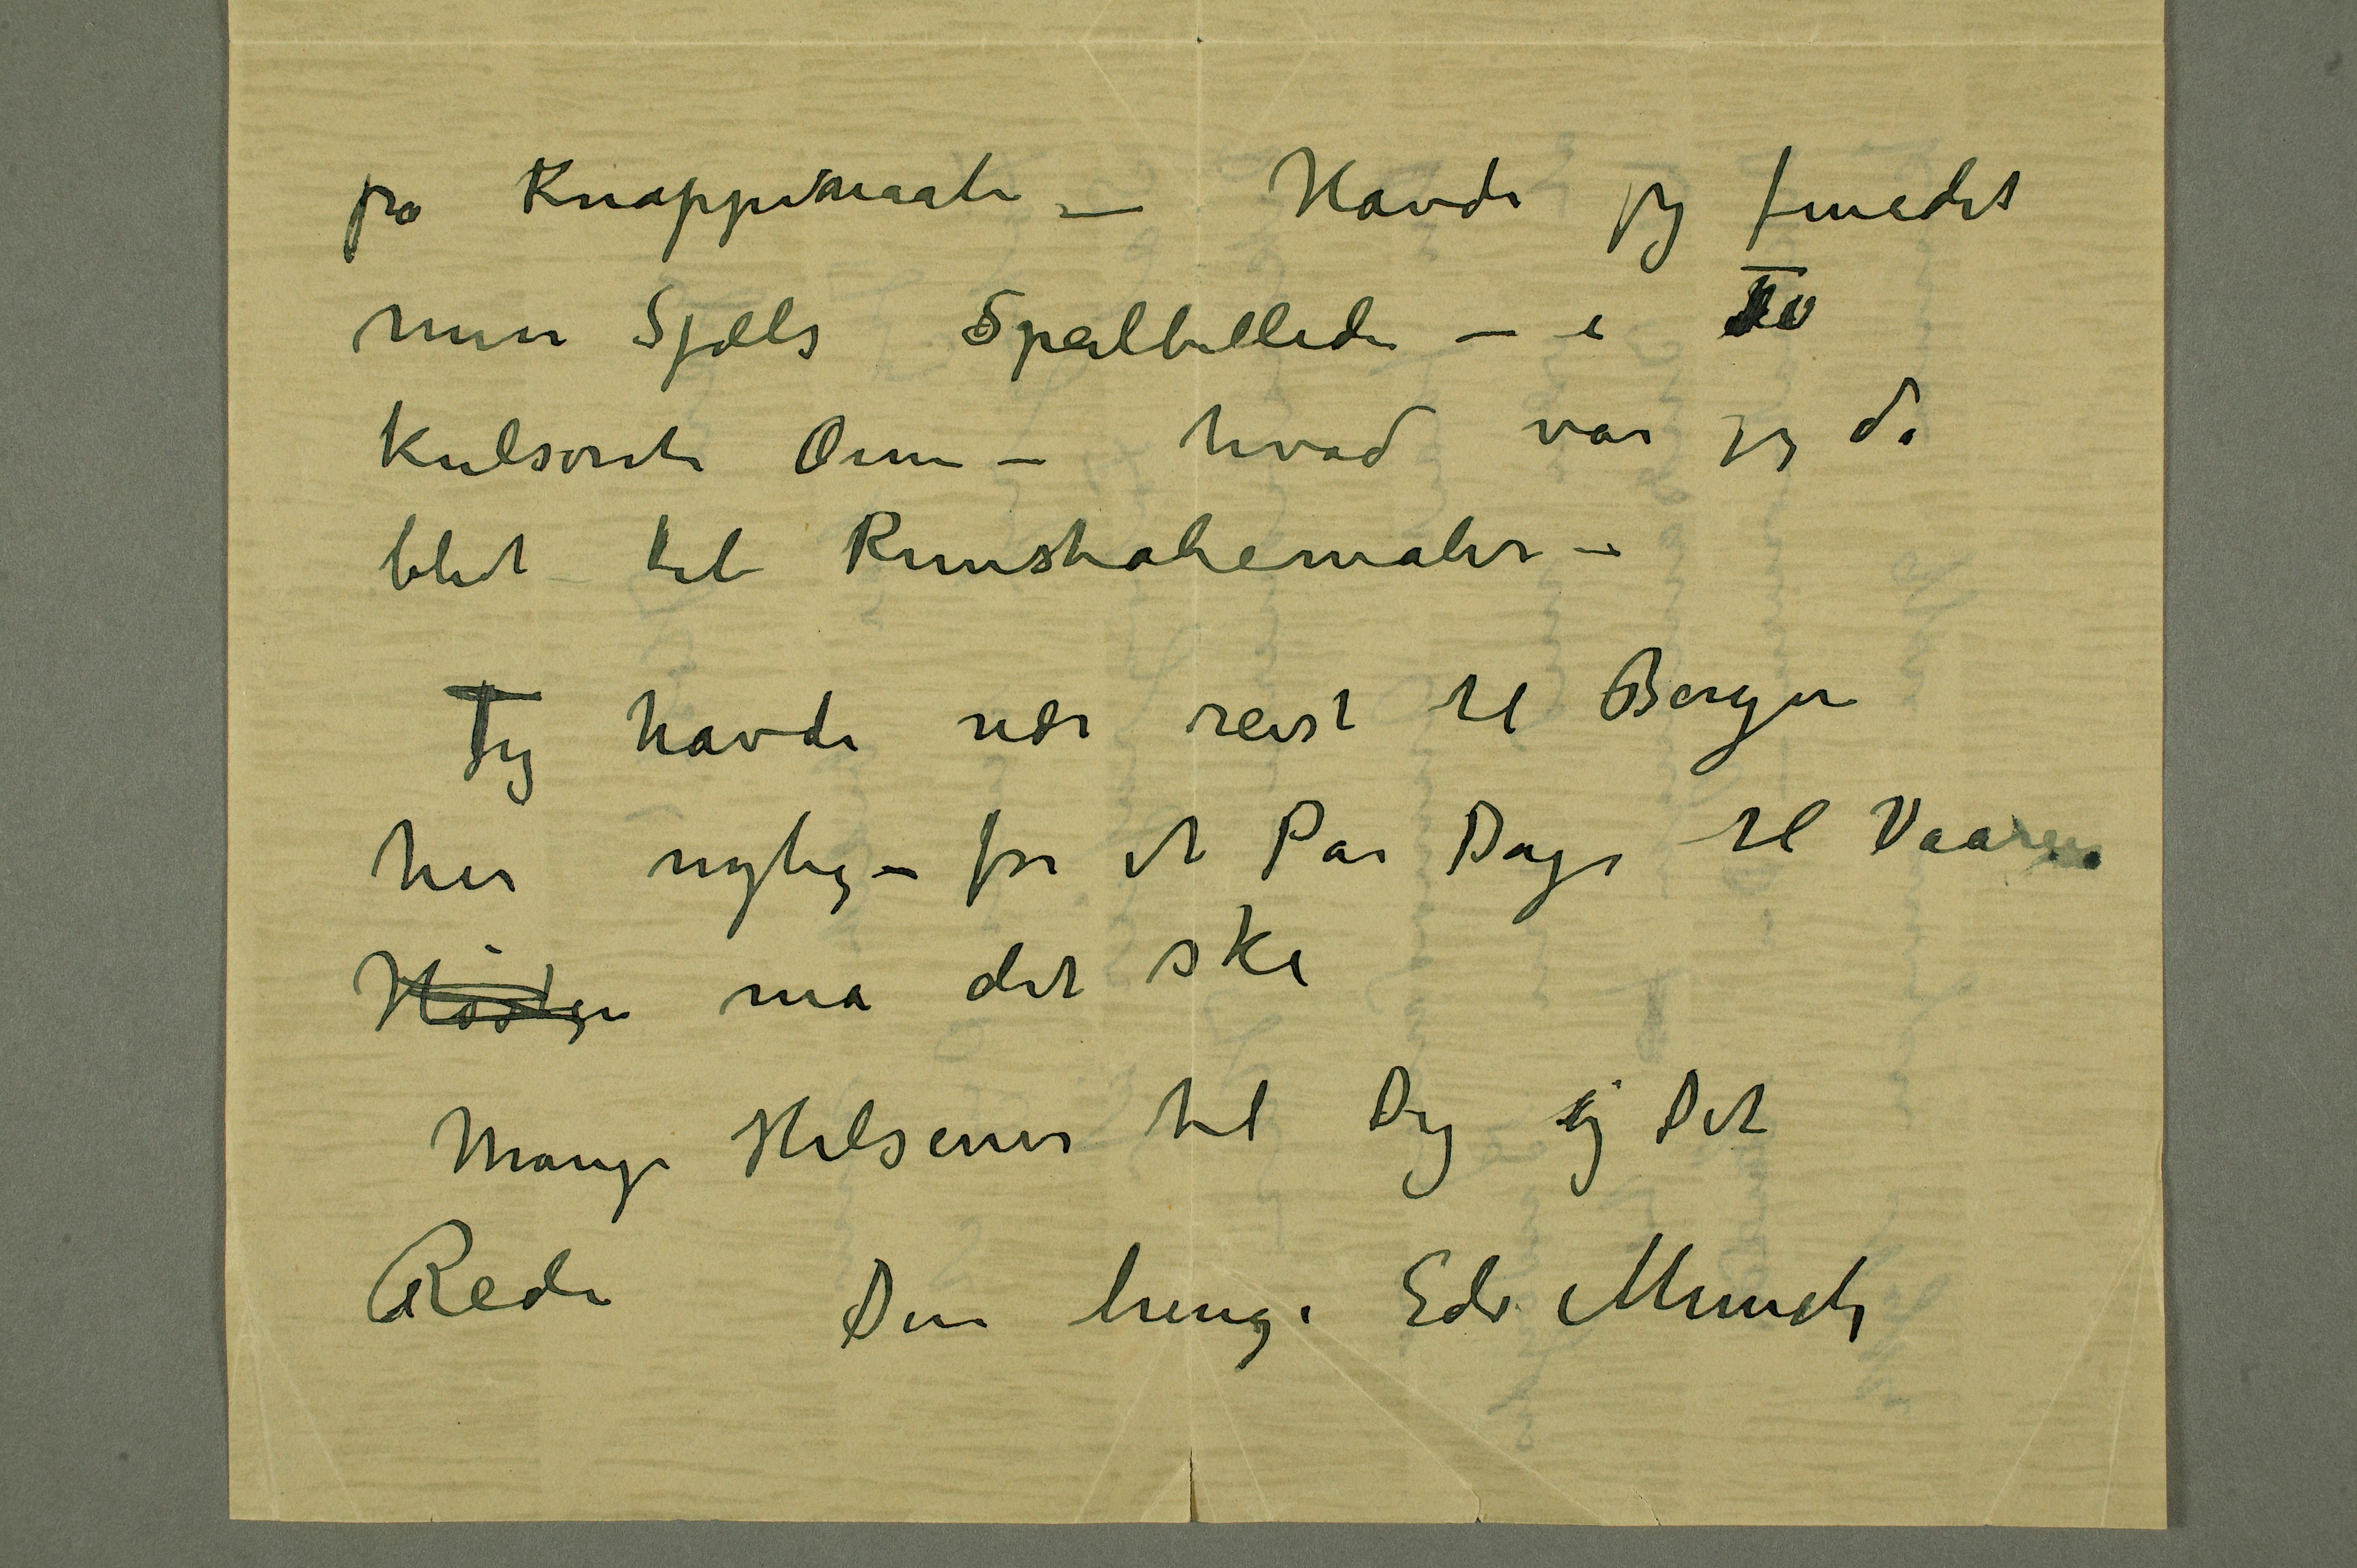 pa Knappenaale – Havde jeg fundet
min Sjæls Speilbillede – i to
kulsorte Øine – hvad var jeg da
blet til Kunstnalemaler –
Jeg havde nær reist til Bergen
her nylig – for et Par Dage til Vaaren
Høsten må det ske
Mange Hilsener til Dig og Dit
Rede Din hengi Edv Munch